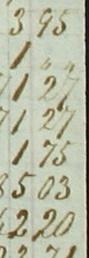 3 95
1 " "
71 27
71 27
1 75
8 5 03
6 2 20